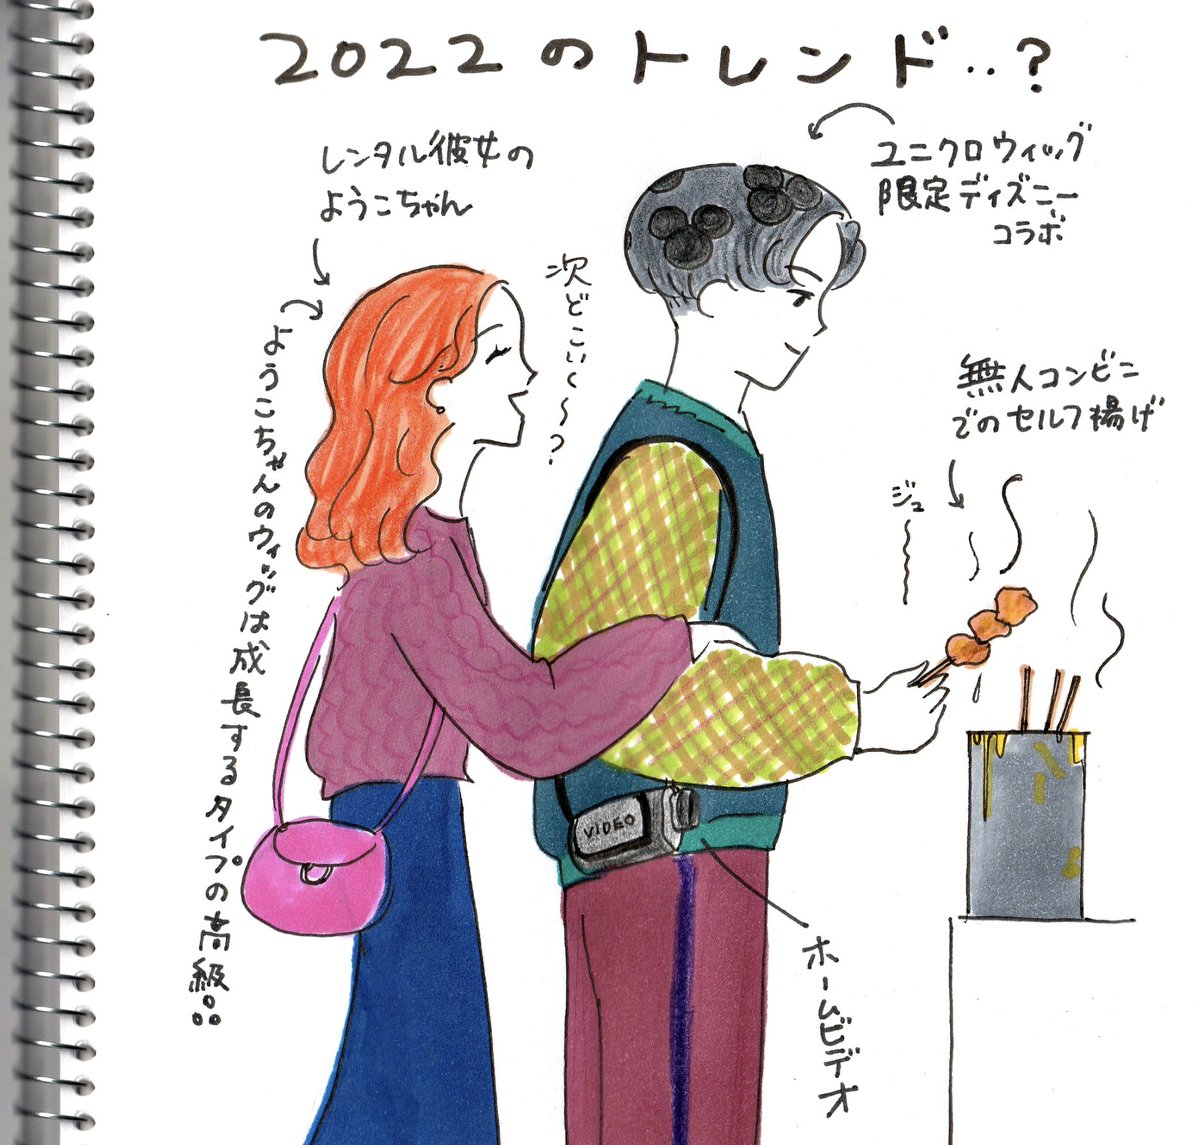 2022のトレンド..?
レンタル彼女の
ようこちゃん
ユニクロウィッグ
限定ディズニー
コラボ
次どこいく〜?
ようこちゃんのウィッグは成長するタイプの高級。
無人コンビニ
でのセルフ揚げ
ジュ〜〜
VIDEO
ホームビデオ